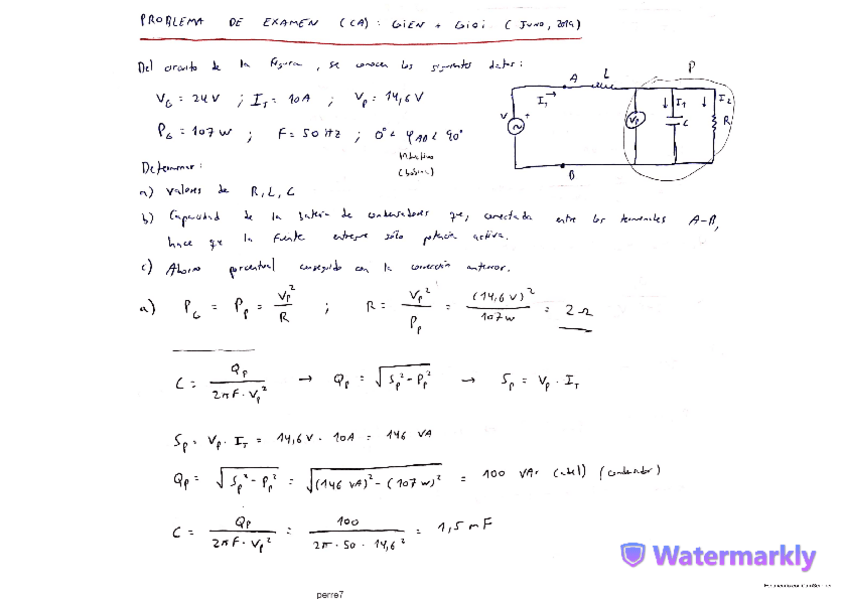 PROBLEMA DE EXAMEN (CA): GIEN + GIOI (JUNIO, 2019)
Del circuito de la figura, se conocen los siguientes datos:
V_G = 24V ; I_T = 10A ; V_P = 14,6V
P_G = 107W ; F = 50Hz ; 0° < φ_AB < 90°
inductivo
(bobina)
A L P
I_T → ↓ I_1 ↓ I_2
V + V_P C R
B
Determinar:
a) Valores de R, L, C
b) Capacidad de la batería de condensadores que, conectada entre los terminales A-B,
hace que la fuente entregue sólo potencia activa.
c) Ahorro porcentual conseguido con la corrección anterior.
a) P_G = P_P = V_P²/R ; R = V_P²/P_P = (14,6V)²/107W = 2Ω
C = Q_P/(2πF·V_P²) → Q_P = √(S_P² - P_P²) → S_P = V_P · I_T
S_P = V_P · I_T = 14,6V · 10A = 146 VA
Q_P = √(S_P² - P_P²) = √((146 VA)² - (107W)²) = 100 VAr (condensador)
C = Q_P/(2πF·V_P²) = 100/(2π·50·14,6²) = 1,5mF
Watermarkly
perre7